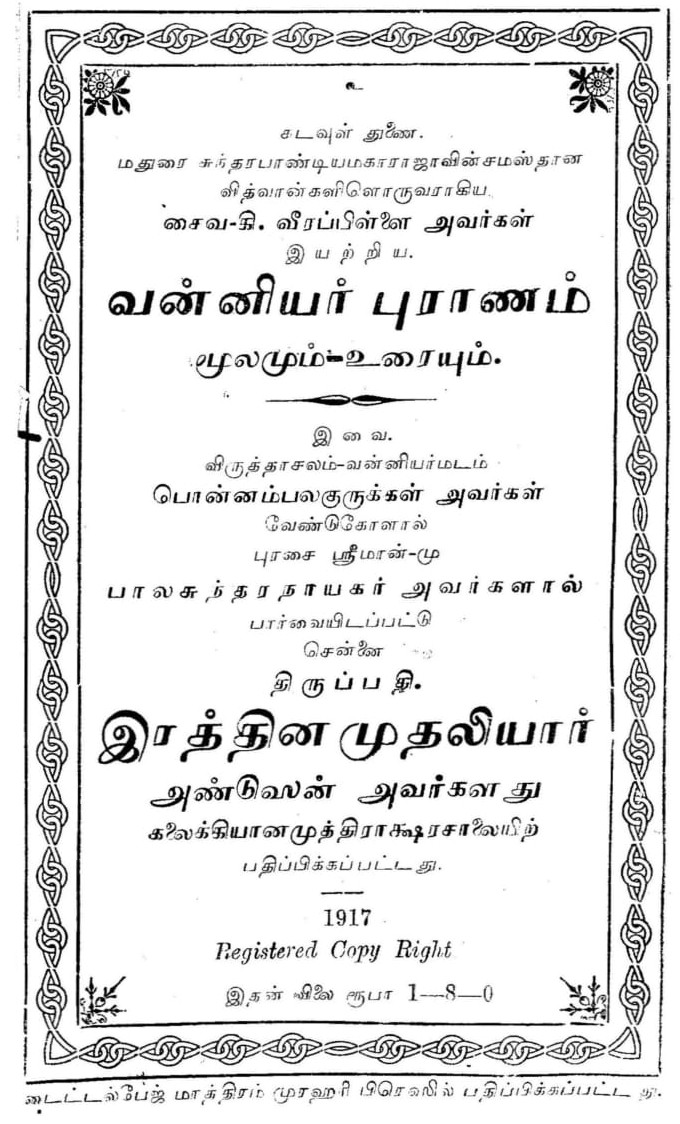 உ
கடவுள் துணை.
மதுரை சுந்தரபாண்டியமகாராஜாவின்சமஸ்தான
வித்வான்களிலொருவராகிய
சைவ-கி. வீரப்பிள்ளை அவர்கள்
இயற்றிய.
வன்னியர் புராணம்
மூலமும்-உரையும்.
இவை.
விருத்தாசலம்-வன்னியர்மடம்
பொன்னம்பலகுருக்கள் அவர்கள்
வேண்டுகோளால்
புரசை ஸ்ரீமான்-மு
பாலசுந்தரநாயகர் அவர்களால்
பார்வையிடப்பட்டு
சென்னை
திருப்பதி.
இரத்தின முதலியார்
அண்டுஸன் அவர்களது
கலைக்கியானமுத்திராக்ஷரசாலையிற்
பதிப்பிக்கப்பட்டது.
1917
Registered Copy Right
இதன் விலை ரூபா 1—8—0
டைட்டல்பேஜ் மாத்திரம் முரஹரி பிரெஸில் பதிப்பிக்கப்பட்டது.